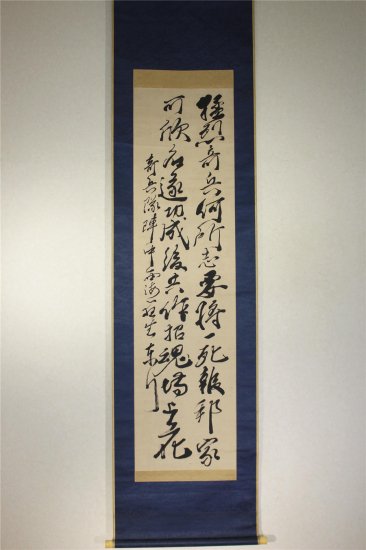 猛烈奇兵何所志要将一死報邦家
可欣名遂功成後共作招魂場上花
奇兵隊陣中西海一狂生東行